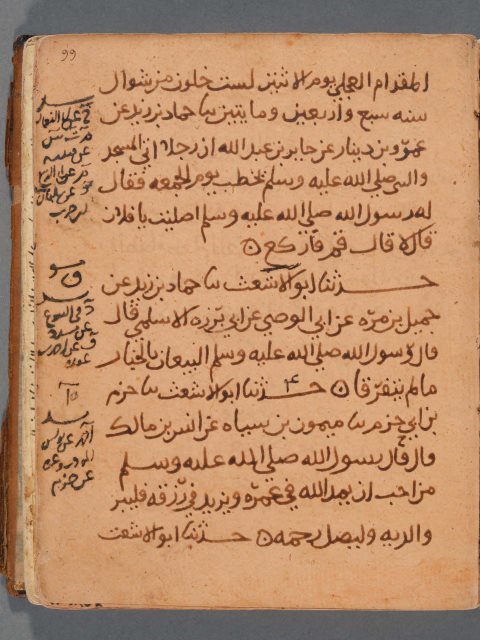 99
المقدام العجلي يوم الاثنين لست خلون من شوال
سنه سبع واربعين وما يتين نا حماد بن زيد عن
عمرو بن دينار عن جابر بن عبد الله ان رجلا اتى المسجد
والنبي صلى الله عليه وسلم يخطب يوم الجمعه فقال
له رسول الله صلى الله عليه وسلم اصليت يا فلان
قال لا قال قم فاركع
حدثنا ابو الاشعث نا حماد بن زيد عن
جميل بن مره عن ابي الوضي عن ابي برزه الاسلمي قال
قال رسول الله صلى الله عليه وسلم البيعان بالخيار
ما لم يتفرقا حدثنا ابو الاشعث نا حزم
بن ابي حزم نا ميمون بن سياه عن انس بن مالك
قال قال رسول الله صلى الله عليه وسلم
من احب ان يمد الله في عمره ويزيد في رزقه فليبر
والديه وليصل رحمه حدثنا ابو الاشعث